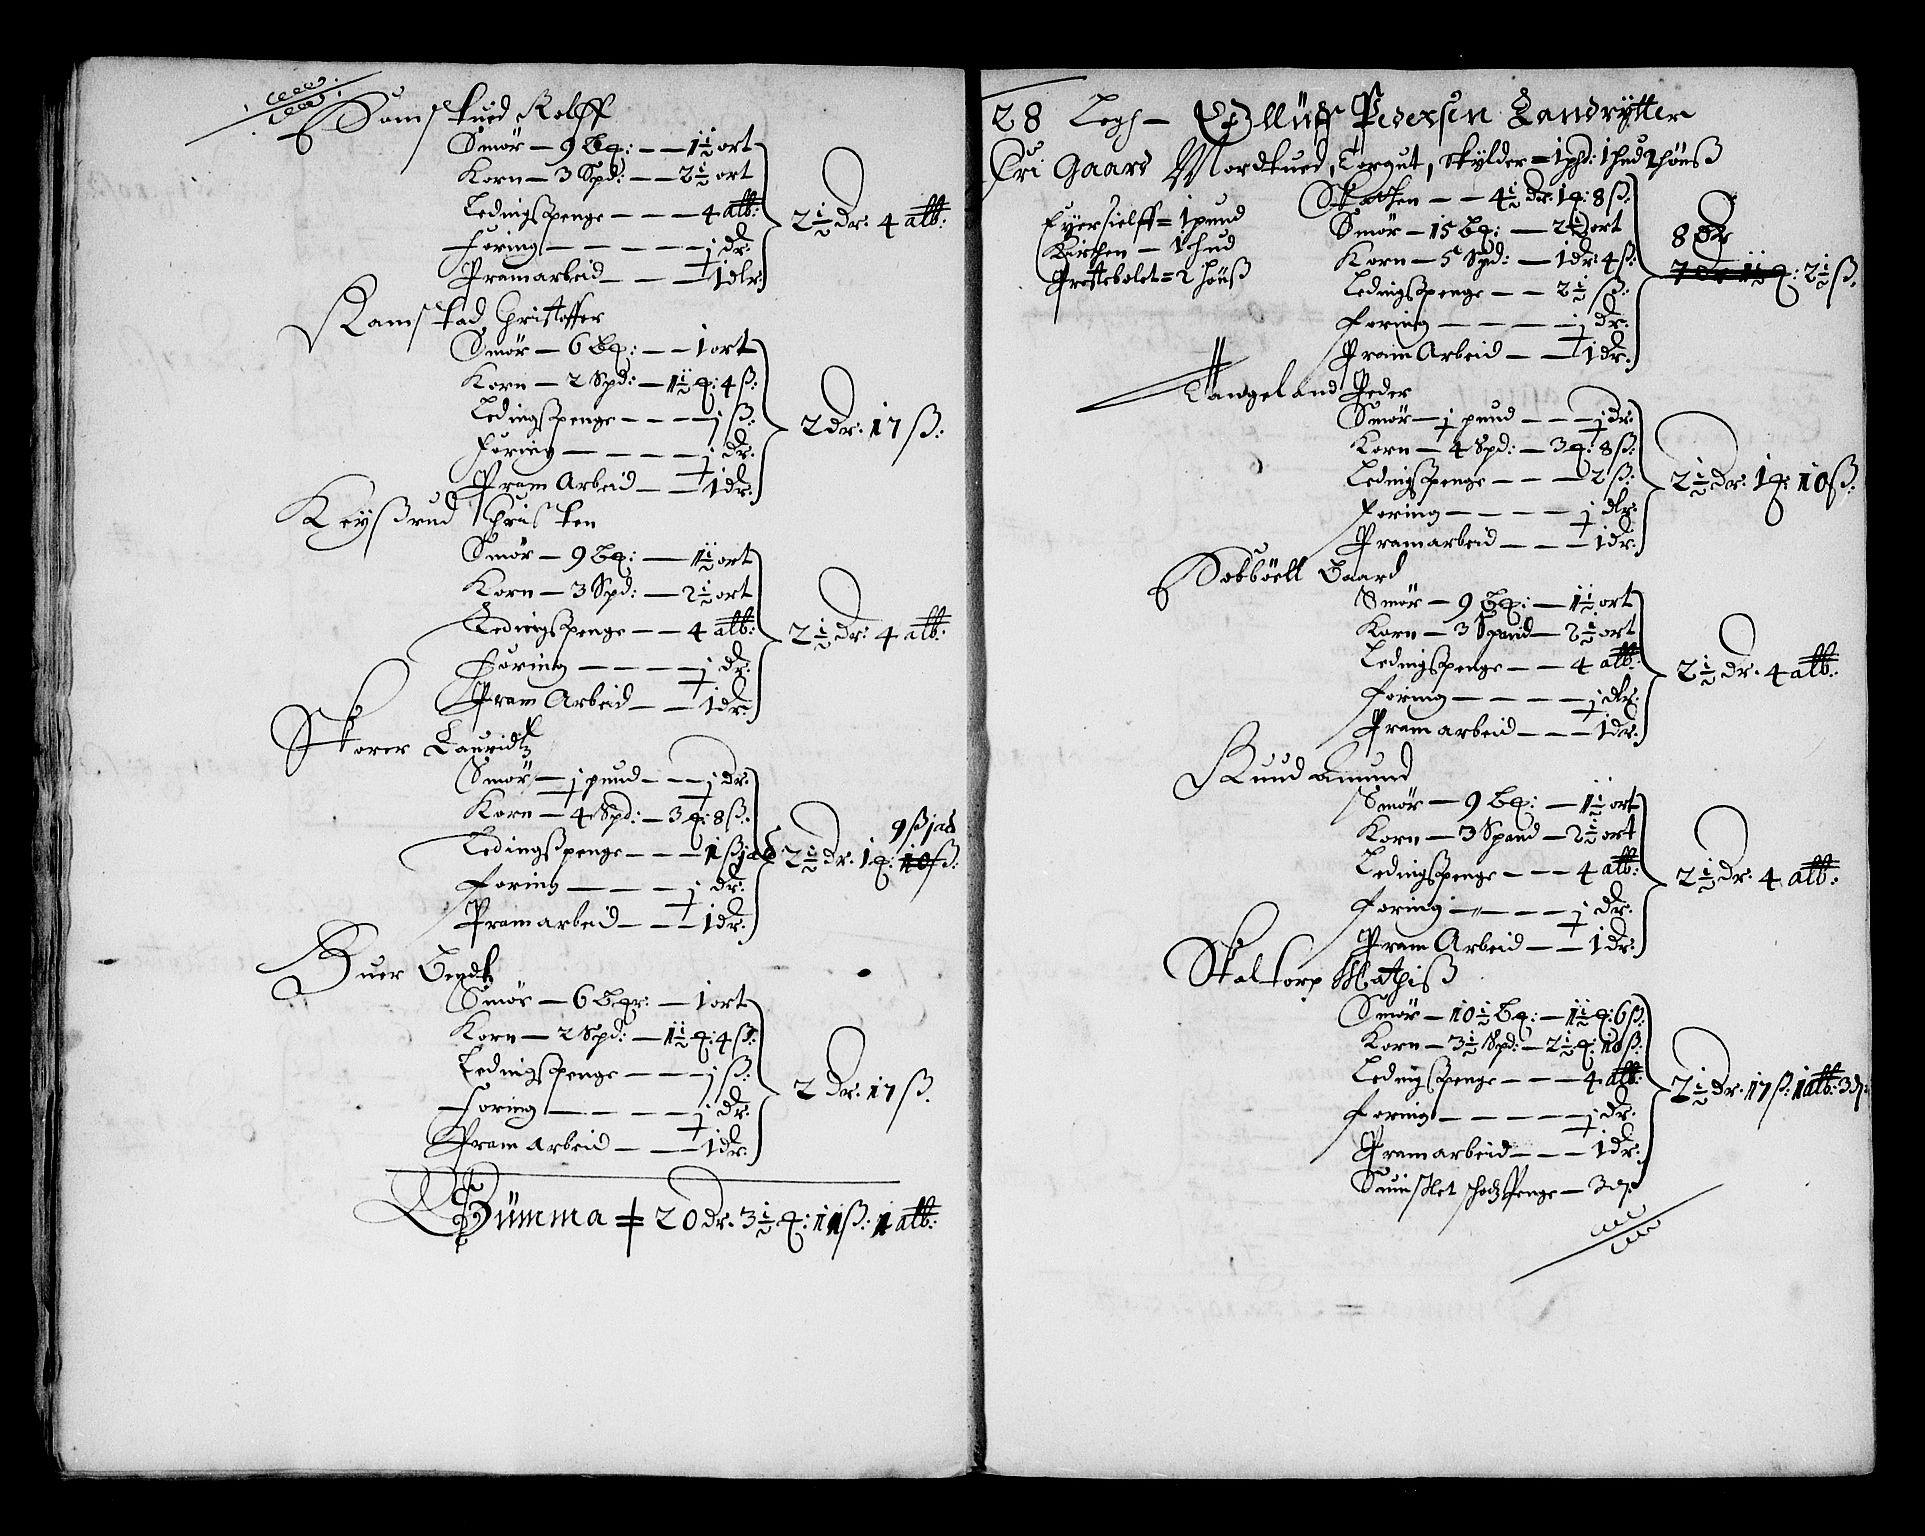 Somstued Rolff
Smør — 9 Bꝑ: — — 1½ ort
Korn — 3 Spd: — — 2½ ort
Ledingßpenge — — — 4 alb:
Foring — — — — — ½ dr:
Pramarbeid — — — 1 dlr:
2½ dr: 4 alb:
Ramstad Christoffer
Smør — 6 Bꝑ: — — 1 ort
Korn — 2 Spd: — 1½ q: 4 ß:
Ledingßpenge — — — — j ß:
Foring — — — — — ½ dr:
Pram Arbeid — — — 1 dr:
2 dr: 17 ß:
Keyßrud Christen
Smør — 9 Bꝑ: — 1½ ort
Korn — 3 Spd: — 2½ ort
Ledingßpenge — — 4 alb:
Foring — — — — ½ dr:
Pram Arbeid — — 1 dr:
2½ dr: 4 alb:
Skorer Lauridtz
Smør — ½ pund — — ½ dr:
Korn — 4 Spd: — 3 q: 8 ß:
Ledingßpenge — — — 1 ß j alb
Foring — — — — ½ dr:
Pramarbeid — — — 1 dr:
9 ß j alb
2½ dr: 1 q: 10 ß:
Buer Bendt
Smør — 6 Bꝑr: — 1 ort
Korn — 2 Spd: — 1½ q: 4 ß:
Ledingßpenge — — — j ß:
Foring — — — — ½ dr:
Pram arbeid — — — 1 dr:
2 dr: 17 ß.
Summa = 20 dr: 3½ q: 11 ß: 1 alb:
28 Legh — Olluff Pedersen Landrytter
Fri Gaard Mordtued, Torgut, skylder = 1 phd: 1 hud 1 hönß
Eyer sielff = 1 pund
Kirchen — 1 hud
Prestebolet = 2 hönß
Skatten — — 4½ dr: 1 q: 8 ß:
Smør — 15 Bꝑ: — 2½ ort
Korn — 5 Spd: — 1 dr: 4 ß:
Ledingßpenge — — 2½ ß:
Foring — — — — ½ dr:
Pram Arbeid — — 1 dr:
8 dr
7 dr 1½ q: 2½ ß:
Tangeland Peder
Smør — ½ pund — — ½ dr:
Korn — 4 Spd: — 3 q: 8 ß:
Ledingßpenge — — — 2 ß:
Foring — — — — — ½ dlr:
Pramarbeid — — — 1 dr:
2½ dr: 1 q: 10 ß:
Dobböell Gaard
Smør — 9 Bꝑ: — 1½ ort
Korn — 3 Spand — 2½ ort
Ledingßpenge — — 4 alb:
Foring — — — — — ½ dlr:
Pram arbeid — — — 1 dr:
2½ dr. 4 alb:
Ruud Amund
Smør — 9 Bꝑ: — 1½ ort
Korn — 3 Spand — 2½ ort
Ledingßpenge — — — 4 alb:
Foring — — — — ½ dr:
Pram Arbeid — — 1 dr:
2½ dr: 4 alb:
Skaltorp Mathiß
Smør — 10½ Bꝑ: — 1½ q: 6 ß:
Korn — 3½ Spd: — 2½ q: 10 ß:
Ledingßpenge — — — 4 alb:
Foring — — — — — ½ dr:
Pramarbeid — — — 1 dr:
penge — 3 d
2½ dr. 17 ß: 1 alb: 3 d: